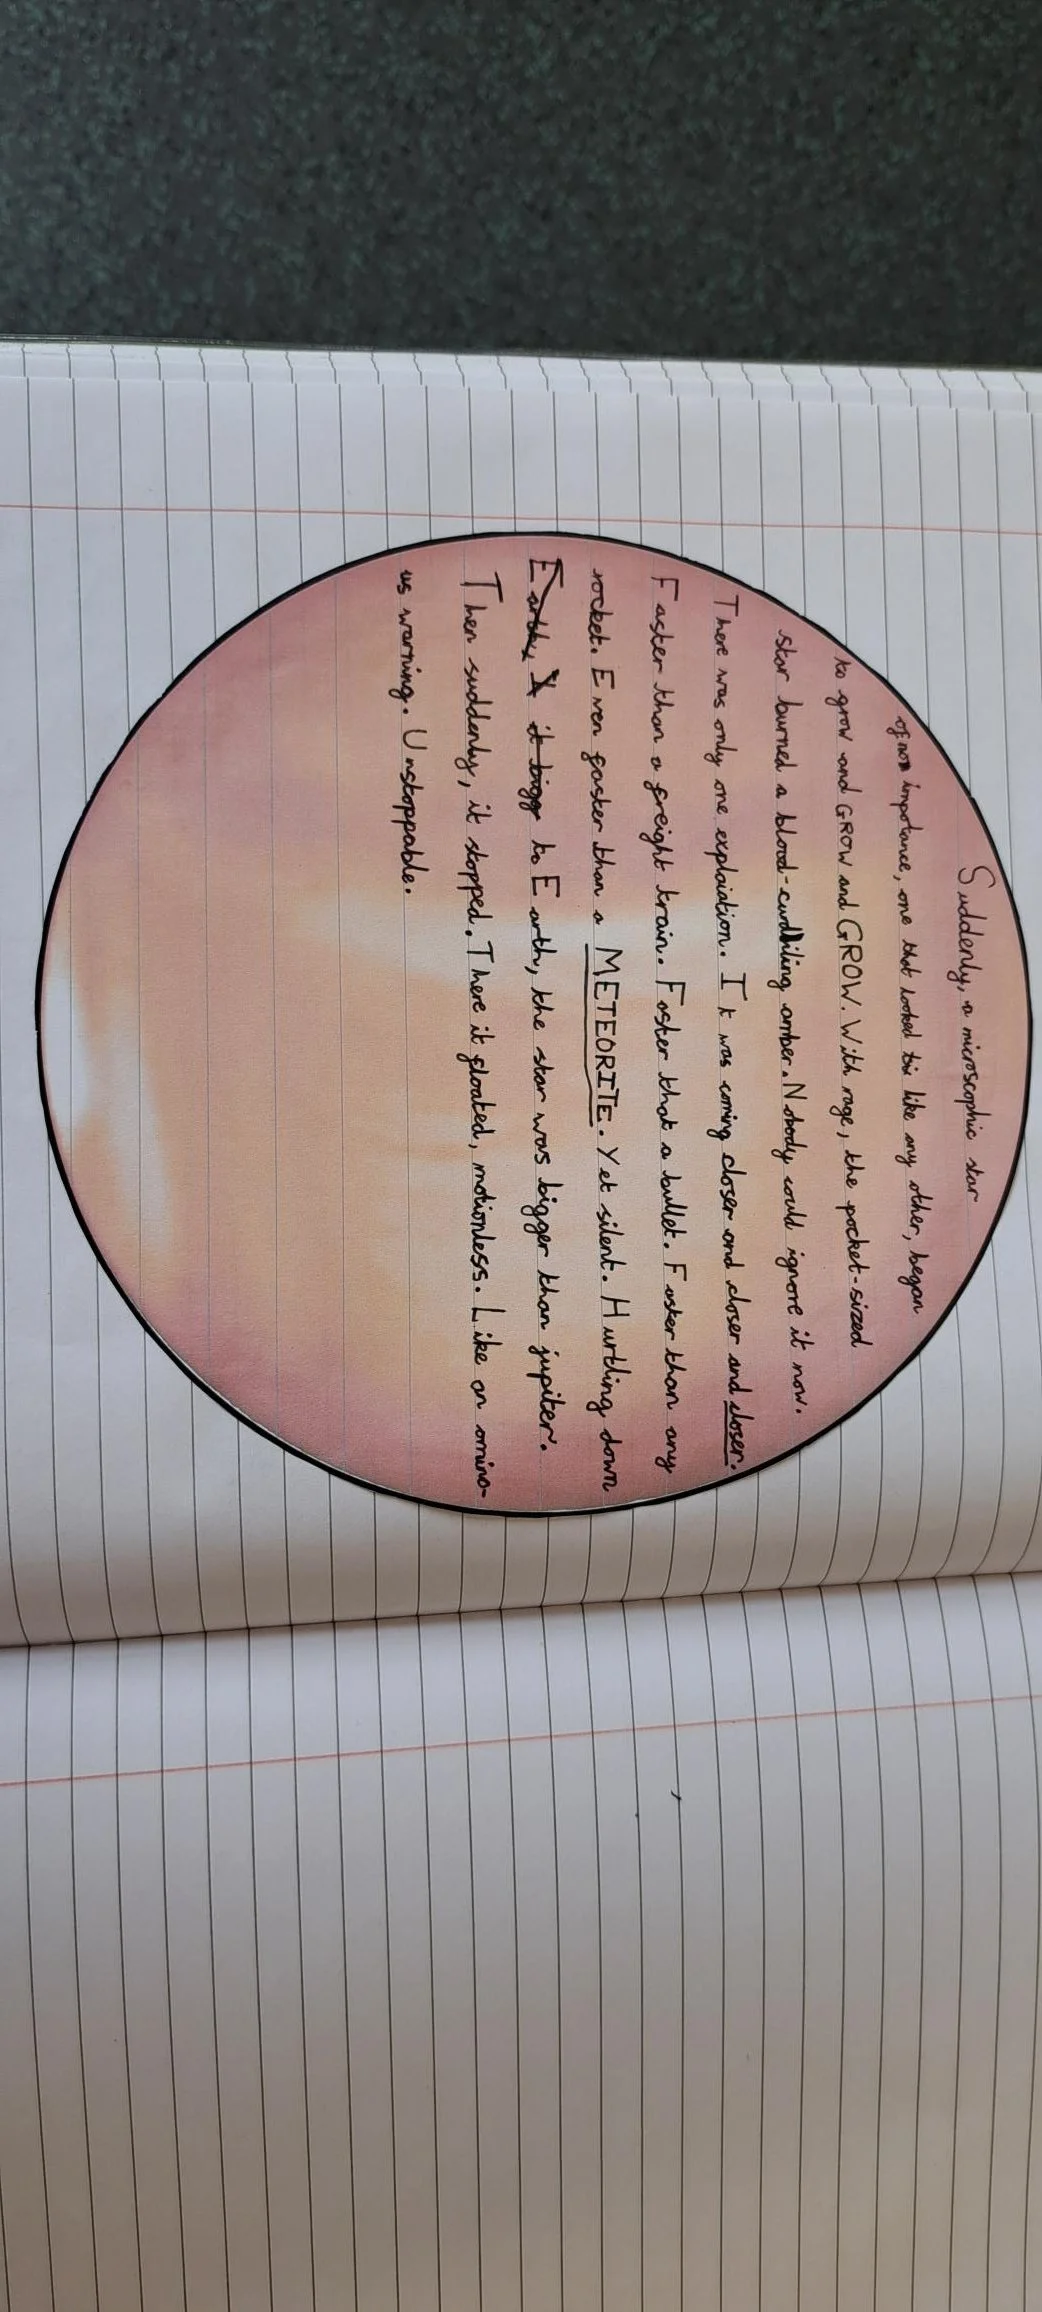 Suddenly, a microscopic star
of no importance, one that looked like any other, began
to grow and GROW and GROW. With rage, the pocket-sized
star burned a blood-curdling amber. Nobody could ignore it now.
There was only one explaiation. It was coming closer and closer and closer.
Faster than a freight train. Faster that a bullet. Faster than any
rocket. Even faster than a METEORITE. Yet silent. Hurtling down
to Earth, the star was bigger than jupiter.
Then suddenly, it stopped. There it floated, motionless. Like an omino-
us warning. Unstoppable.